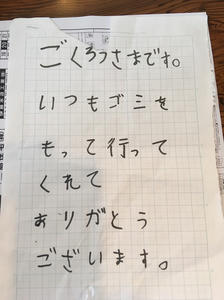 ごくろうさまです。
いつもゴミを
もって行って
くれて
ありがとう
ございます。